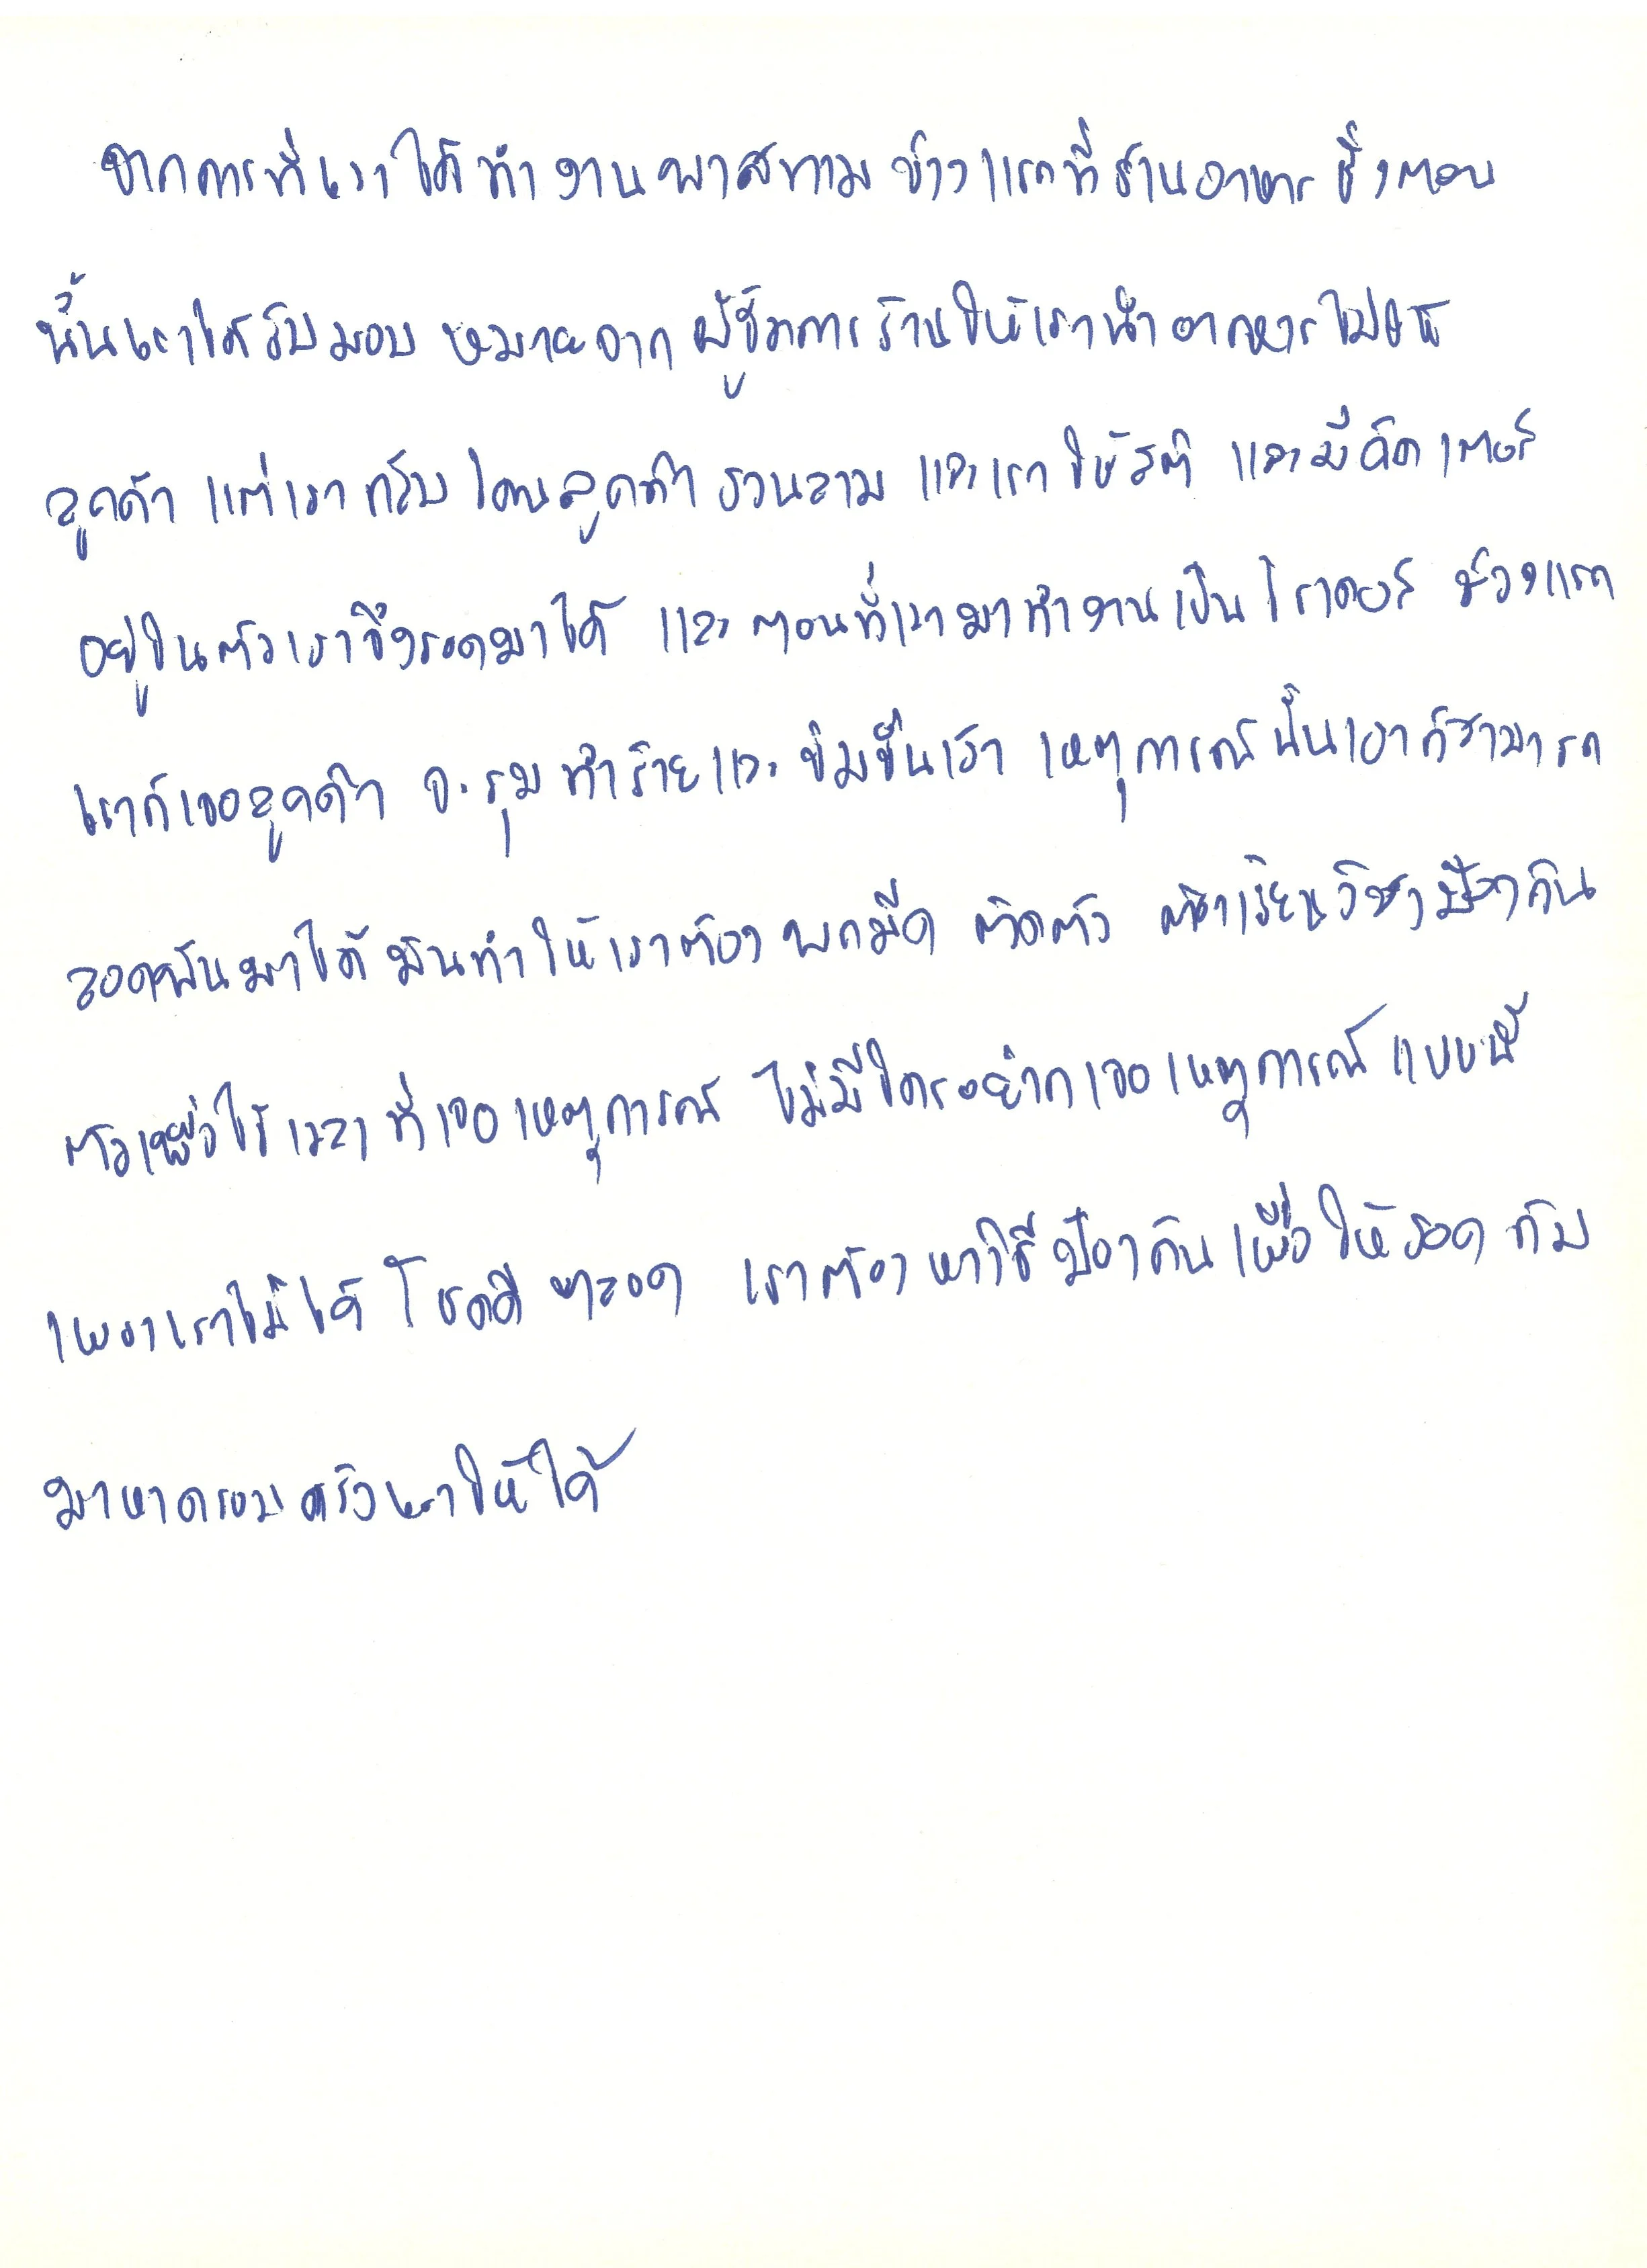 จากการที่เราได้ทำงานพาสทามช่วงแรกที่ร้านอาหารซึ่งตอน
นั้นเราได้รับมอบหมายจากผู้จัดการร้านให้เรานำอาหารไปให้
ลูกค้า แต่เรากลับโดนลูกค้าลวนลาม และเราใช้สติ และมีคัตเตอร์
อยู่ในตัวเราจึงรอดมาได้ และตอนที่เรามาทำงานเป็นไรเดอร์ ช่วงแรก
เราก็เจอลูกค้า จะรุมทำร้ายและข่มขืนเรา เหตุการณ์นั้นเราก็สามารถ
รอดพ้นมาได้ มันทำให้เราต้องพกมีด ติดตัว เรียนวิชาป้องกัน
ตัวเพื่อใช้เวลาที่เจอเหตุการณ์ ไม่มีใครอยากเจอเหตุการณ์แบบนี้
เพราะเราไม่ได้โชคดีตลอด เราต้องหาวิธีป้องกันเพื่อให้รอดกลับ
มาหาครอบครัวเราให้ได้